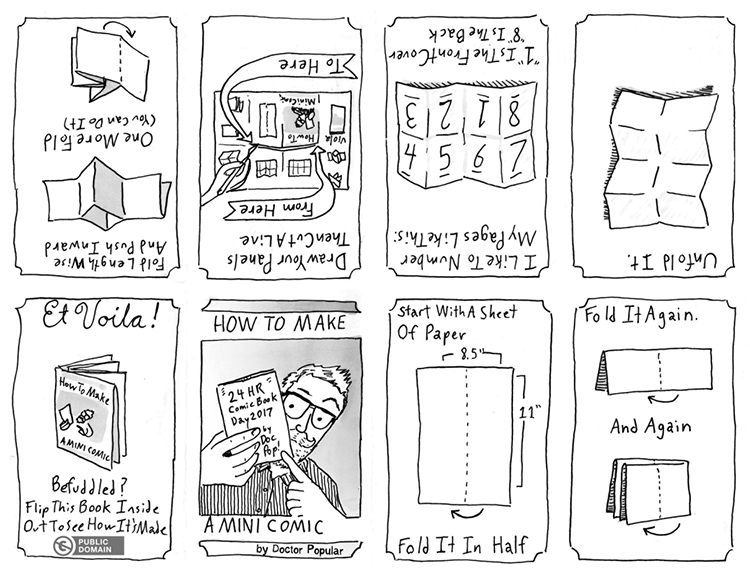 HOW TO MAKE
"24 HR
Comic Book
Day 2017"
by
Doc
Pop!
A MINI COMIC
by Doctor Popular
Start With A Sheet
Of Paper
8.5"
11"
Fold It In Half
Fold It Again.
And Again
Unfold It.
I Like To Number
My Pages Like This:
7 6 5 4
8 1 2 3
"1" Is The Front Cover
"8" Is The Back
Draw Your Panels
Then Cut A Line
From Here
Viola
How To
Mini Comic
To Here
Fold Length Wise
And Push Inward
One More Fold
(You Can Do It)
Et Voila!
How To Make
A MINI COMIC
Befuddled?
Flip This Book Inside
Out To See How It's Made
PUBLIC
DOMAIN